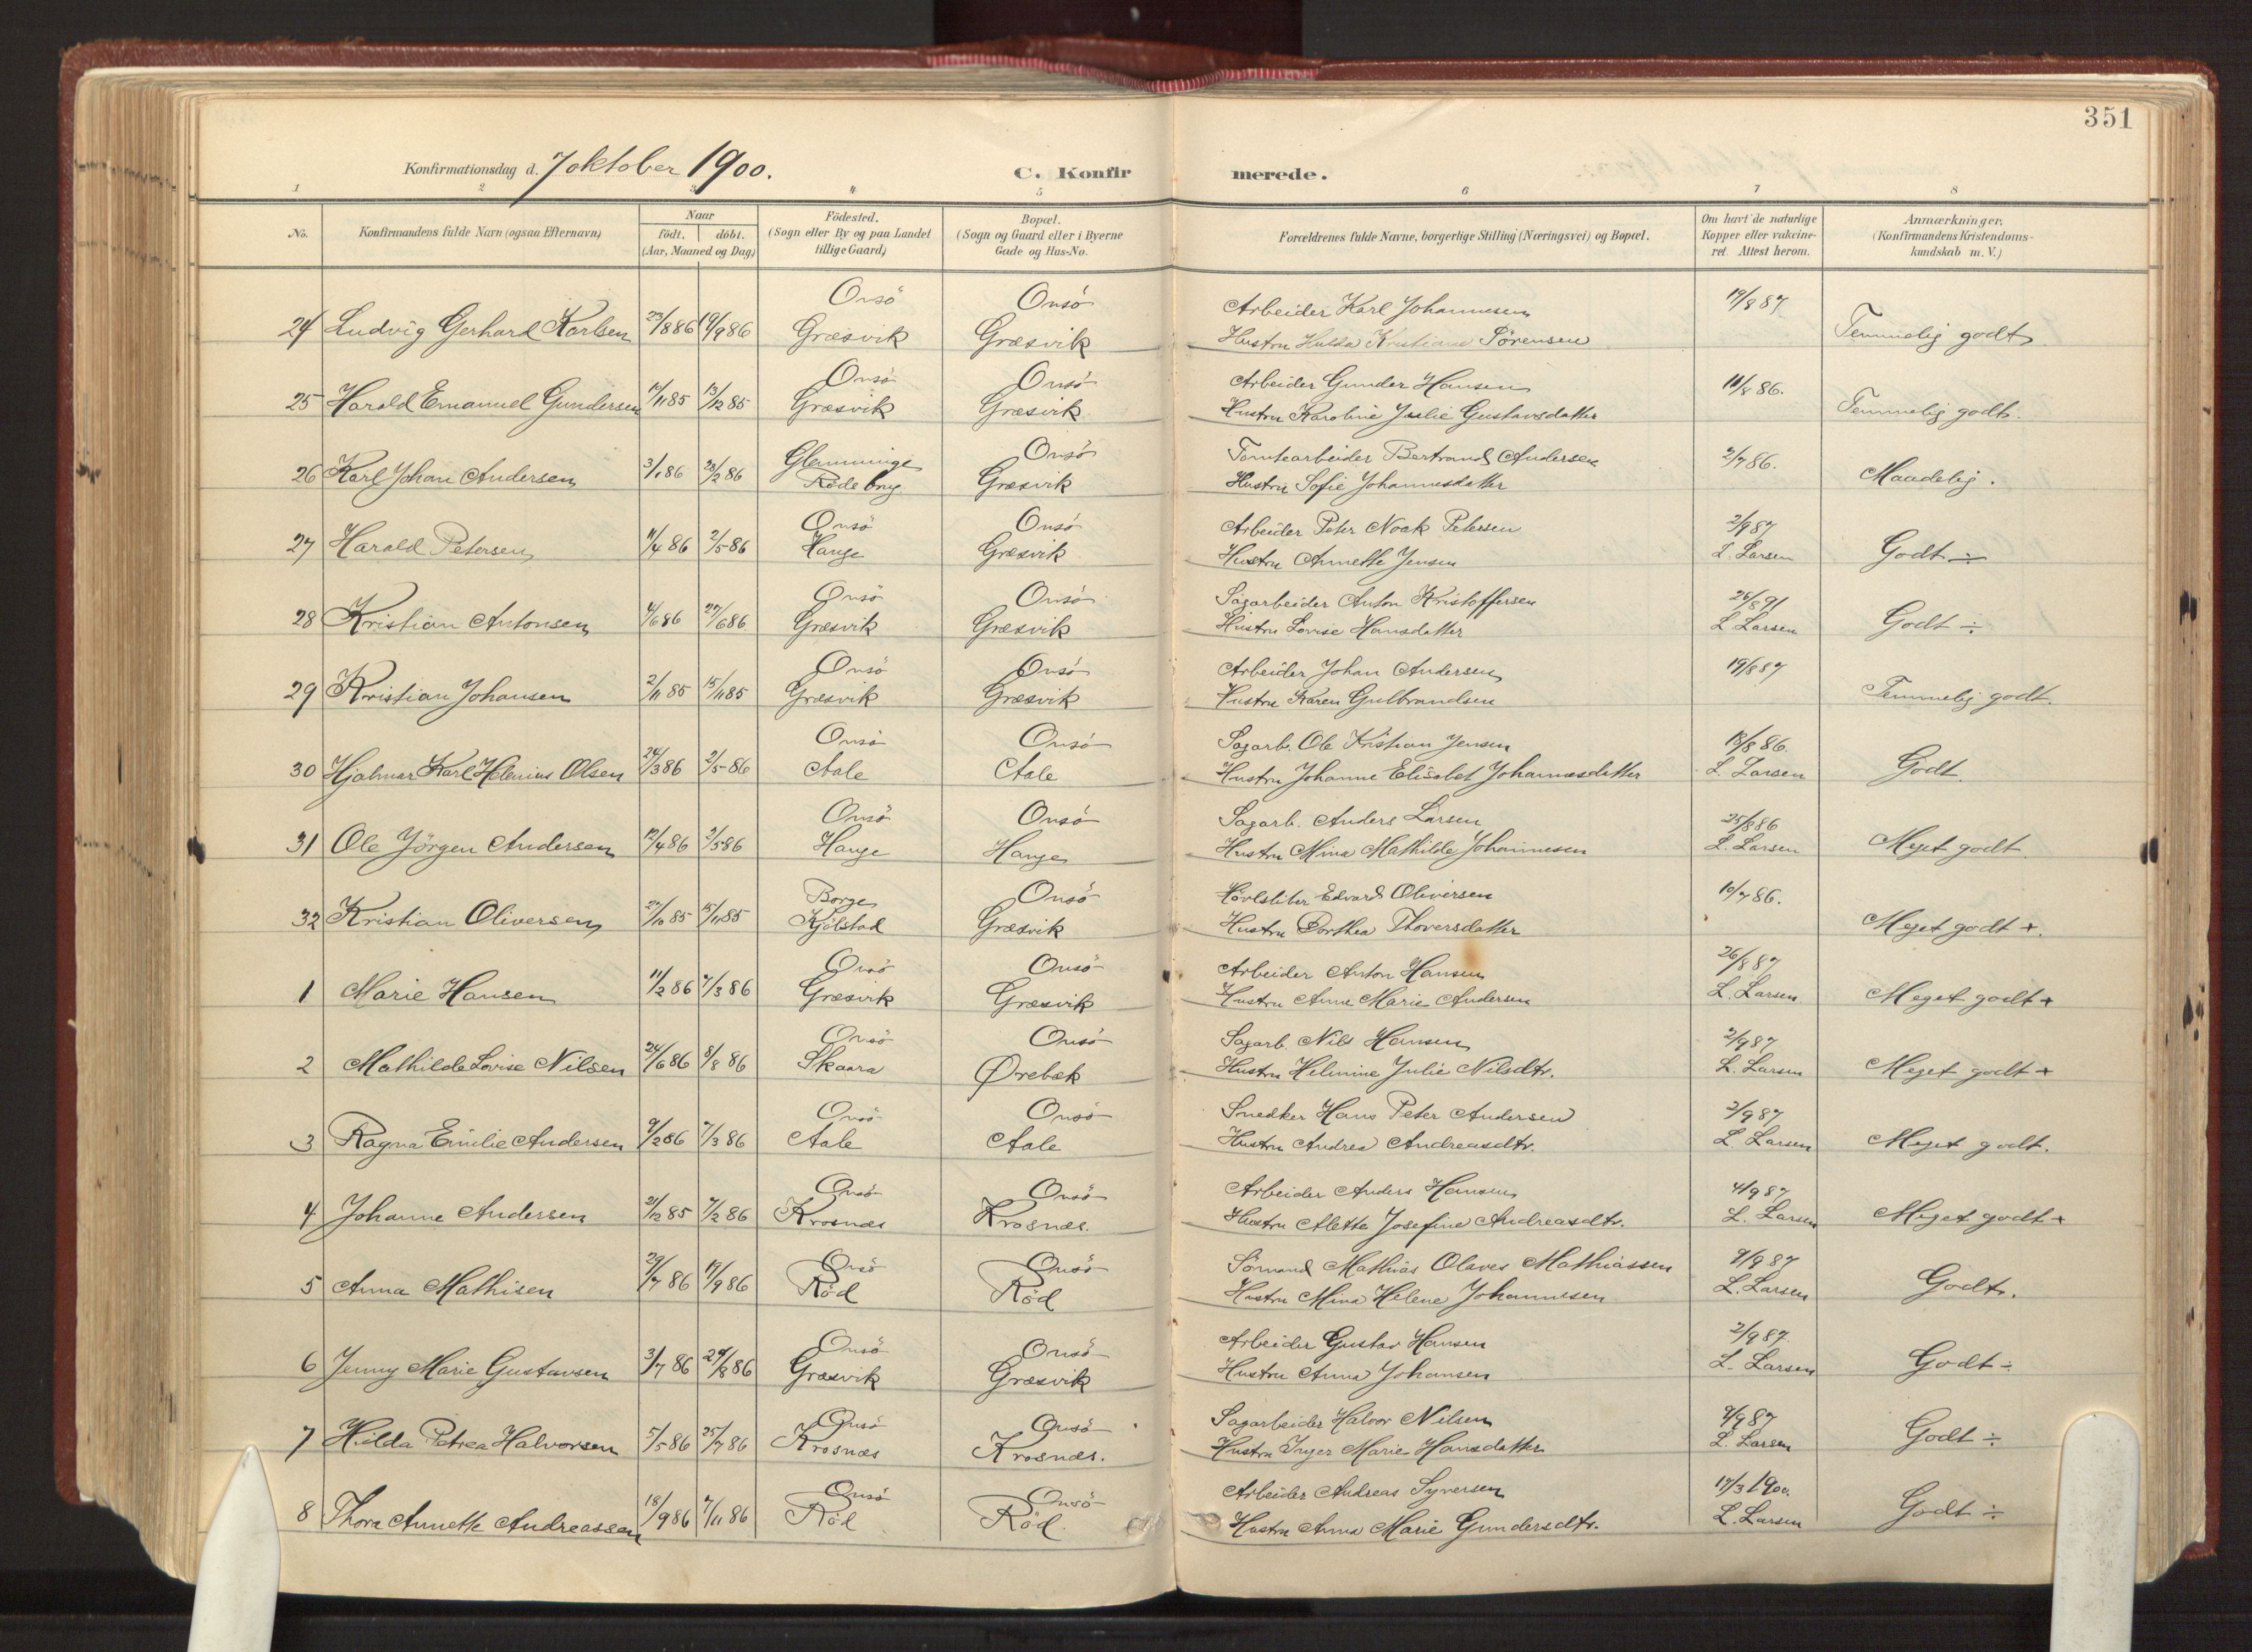 351
Konfirmationsdag d. 7 oktober 1900. C. Konfirmerede.
1 2 3 4 5 6 7 8
No. Konfirmandens fulde Navn (ogsaa Efternavn) Naar födt. döbt. (Aar, Maaned og Dag) Födested. (Sogn eller By og paa Landet tillige Gaard) Bopæl. (Sogn og Gaard eller i Byerne Gade og Hus-No. Forældrenes fulde Navne, borgerlige Stilling (Næringsvei) og Bopæl. Om havt de naturlige Kopper eller vakcineret. Attest herom. Anmærkninger. (Konfirmandens Kristendomskundskab m. V.)
Onsö Onsö Arbeider Karl Johannesen 19/8 87
24 Ludvig Gerhard Karlsen 23/8 86 19/9 86 Græsvik Græsvik Hustru Hulda Kristiane Sörensen Temmelig godt
Onsö Onsö Arbeider Gunder Hansen 18/8 86.
25 Harald Emanuel Gundersen 17/11 85 13/12 85 Græsvik Græsvik Hustru Karoline Julie Gustavsdatter Temmelig godt.
Glemminge Onsö Tomtearbeider Bertrand Andersen 2/7 86.
26 Karl Johan Andersen 3/1 86 28/2 86 Röde brug Græsvik Hustru Sofie Johannesdatter Maadelig.
Onsö Onsö Arbeider Peter Noak Petersen 2/9 87
27 Harald Petersen 11/4 86 2/5 86 Hauge Græsvik Hustru Annette Jensen L. Larsen Godt ÷
Onsö Onsö Sagarbeider Anton Kristoffersen 26/8 91
28 Kristian Antonsen 4/6 86 27/6 86 Græsvik Græsvik Hustru Lovise Hansdatter L. Larsen Godt ÷
Onsö Onsö Arbeider Johan Andersen 19/8 87
29 Kristian Johansen 2/11 85 15/11 85 Græsvik Græsvik Hustru Karen Gulbrandsen Temmelig godt.
Onsö Onsö Sagarb. Ole Kristian Jensen 18/8 86.
30 Hjalmar Karl Helenius Olsen 24/3 86 2/5 86 Aale Aale Hustru Johanne Elisabet Johannesdatter L. Larsen Godt.
Onsö Onsö Sagarb. Anders Larsen 25/8 86
31 Ole Jörgen Andersen 12/4 86 2/5 86 Hauge Hauge Hustru Mina Mathilde Johannesen L. Larsen Meget godt.
Borge Onsö Hövlsliber Edvard Oliversen 10/7 86.
32 Kristian Oliversen 27/10 85 15/11 85 Kjölstad Græsvik Hustru Dorthea Thoversdatter Meget godt +.
Onsö Onsö Arbeider Anton Hansen 26/8 87
1 Marie Hansen 11/2 86 7/3 86 Græsvik Græsvik Hustru Anne Marie Andersen L. Larsen Meget godt +
Onsö Onsö Sagarb. Nils Hansen 2/9 87
2 Mathilde Lovise Nilsen 24/6 86 8/8 86 Skaara Ørebæk Hustru Helmine Julie Nilsdtr. L. Larsen Meget godt +
Onsö Onsö Snedker Hans Peter Andersen 2/9 87
3 Ragna Emilie Andersen 9/2 86 7/3 86 Aale Aale Hustru Andrea Andreasdtr. L. Larsen Meget godt.
Onsö Onsö Arbeider Anders Hansen 4/9 87
4 Johanne Andersen 21/12 85 7/2 86 Krosnæs Krosnæs. Hustru Alette Josefine Andreasdtr. L. Larsen Meget godt +
Onsö Onsö Sömand Mathias Olaves Mathiassen 9/9 87
5 Anna Mathisen 29/7 86 19/9 86 Röd Röd Hustru Mina Helene Johannesen L. Larsen Godt.
Onsö Onsö Arbeider Gustav Hansen 2/9 87.
6 Jenny Marie Gustavsen 3/7 86 29/8 86 Græsvik Græsvik Hustru Anna Johansen L. Larsen Godt ÷
Onsö Onsö Sagarbeider Halvor Nilsen 9/9 87
7 Hilda Petrea Halvorsen 5/5 86 25/7 86 Krosnæs Krosnæs. Hustru Inger Marie Hansdatter L. Larsen Godt ÷
Onsö Onsö Arbeider Andreas Syversen 17/3 1900.
8 Thora Annette Andreassen 18/9 86 7/11 86 Röd Röd Hustru Anna Marie Gundersdtr. L. Larsen Godt ÷